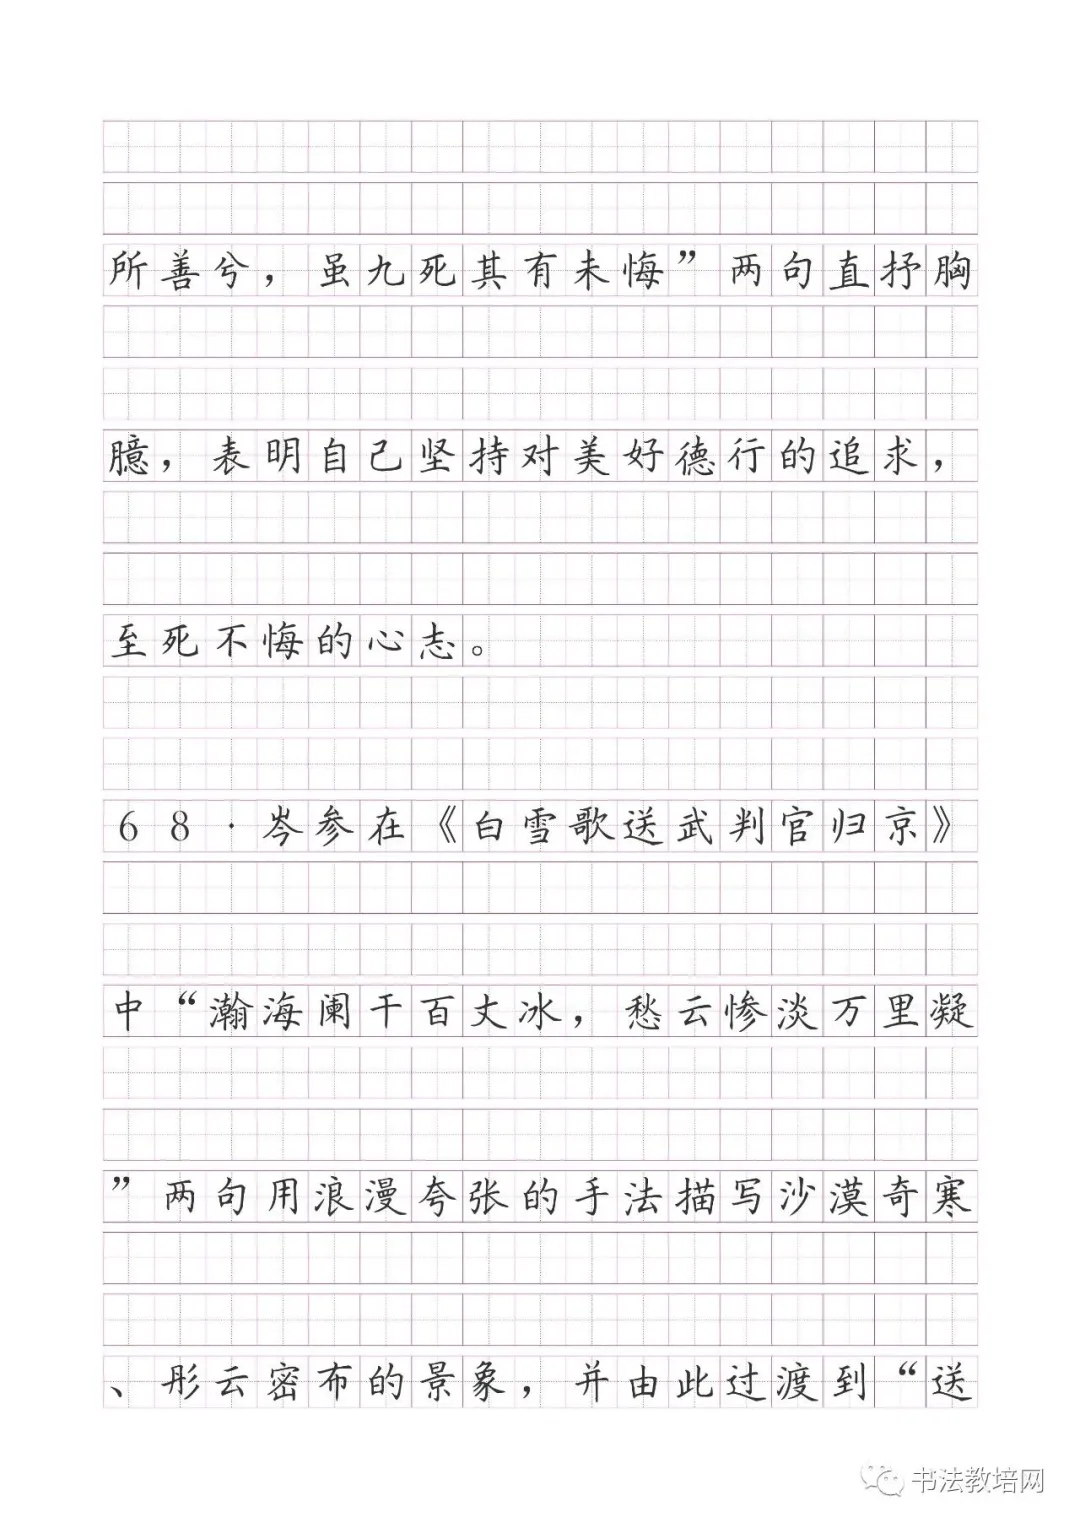 所善兮，虽九死其有未悔”两句直抒胸
臆，表明自己坚持对美好德行的追求，
至死不悔的心志。
68·岑参在《白雪歌送武判官归京》
中“瀚海阑干百丈冰，愁云惨淡万里凝
”两句用浪漫夸张的手法描写沙漠奇寒
、彤云密布的景象，并由此过渡到“送
书法教培网